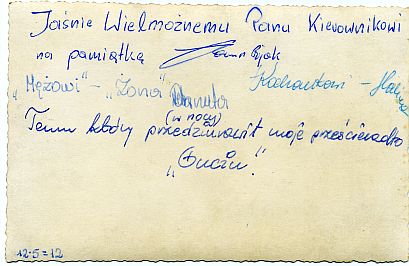 Jaśnie Wielmożnemu Panu Kierownikowi
na pamiątkę
„Mężowi" – „Żona" Danuta
Kochankowi – Halina
(w nocy)
Temu który przedziurawił moje prześcieradło
„Guciu".
12-5=12